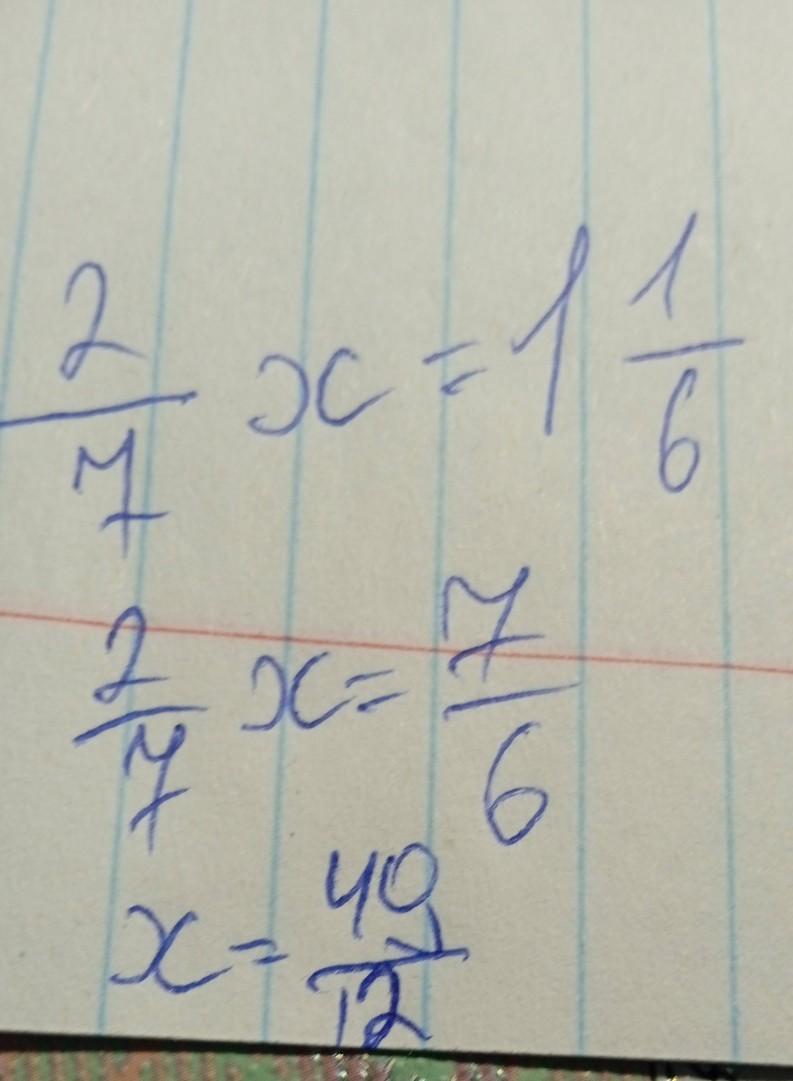 2/7 x = 1 1/6
2/7 x = 7/6
x = 49/12